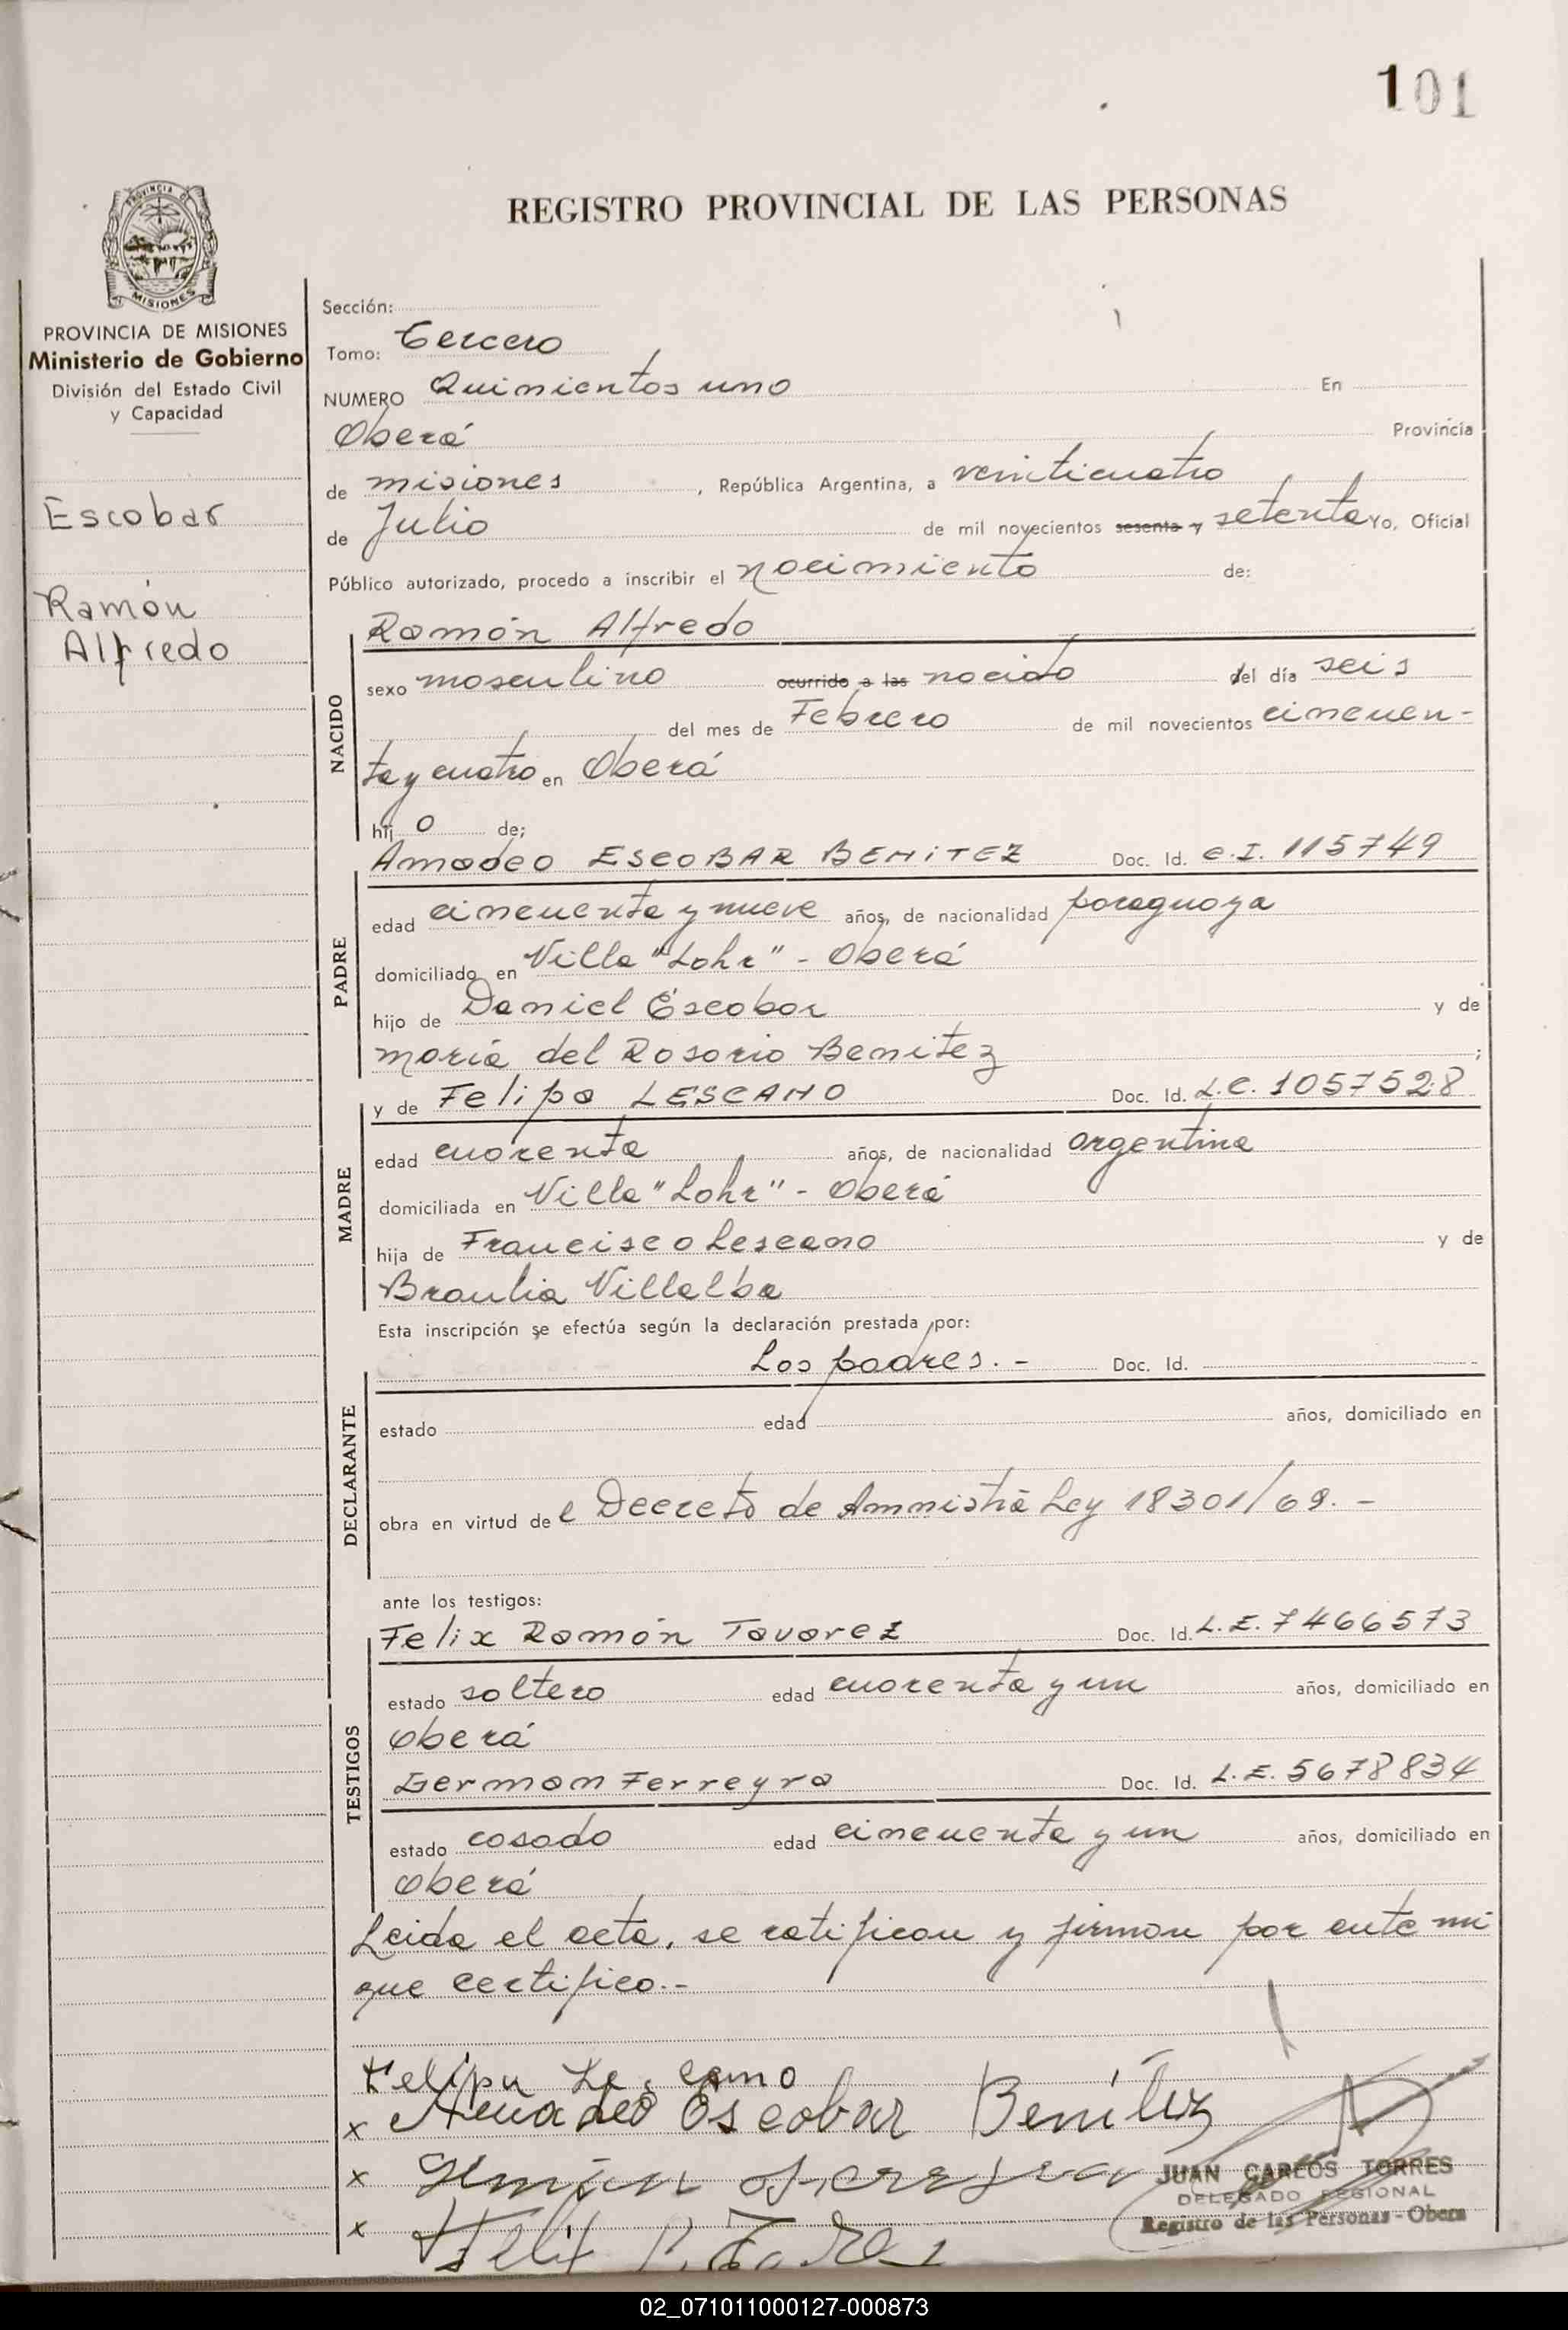 101
REGISTRO PROVINCIAL DE LAS PERSONAS
PROVINCIA DE MISIONES
PROVINCIA DE MISIONES
Ministerio de Gobierno
División del Estado Civil
y Capacidad
Escobar
Ramón
Alfredo
Sección:
Tomo: Tercero
NUMERO Quinientos uno En
Oberá Provincia
de misiones, República Argentina, a veinticuatro
de Julio de mil novecientos sesenta y setenta Yo, Oficial
Público autorizado, procedo a inscribir el nacimiento de:
NACIDO
Ramón Alfredo
sexo masculino ocurrido a las nacido del día seis
del mes de Febrero de mil novecientos cincuen-
ta y cuatro en Oberá
hijo de;
PADRE
Amadeo ESCOBAR BENITEZ Doc. Id. C.I. 115749
edad cincuenta y nueve años, de nacionalidad paraguaya
domiciliado en Villa "Lohr" - Oberá
hijo de Daniel Escobar y de
maría del Rosario Benitez ;
MADRE
y de Felipa LESCANO Doc. Id. L.C. 1057528
edad cuarenta años, de nacionalidad argentina
domiciliada en Villa "Lohr" - Oberá
hija de Francisco Lescano y de
Braulia Villalba
Esta inscripción se efectúa según la declaración prestada por:
DECLARANTE
Los padres. - Doc. Id.
estado edad años, domiciliado en
obra en virtud del Decreto de Amnistía Ley 18301/69. -
ante los testigos:
TESTIGOS
Felix Ramón Tavarez Doc. Id. L.E. 7466573
estado soltero edad cuarenta y un años, domiciliado en
Oberá
German Ferreyra Doc. Id. L.E. 5678834
estado casado edad cincuenta y un años, domiciliado en
Oberá
Leida el acta, se ratifican y firman por ante mi
que certifico.-
Felipa Lescano
x Amadeo Escobar Benítez
x German Ferreyra
x Felix R. Tavarez
JUAN CARLOS TORRES
DELEGADO REGIONAL
Registro de las Personas - Obera
02_071011000127-000873